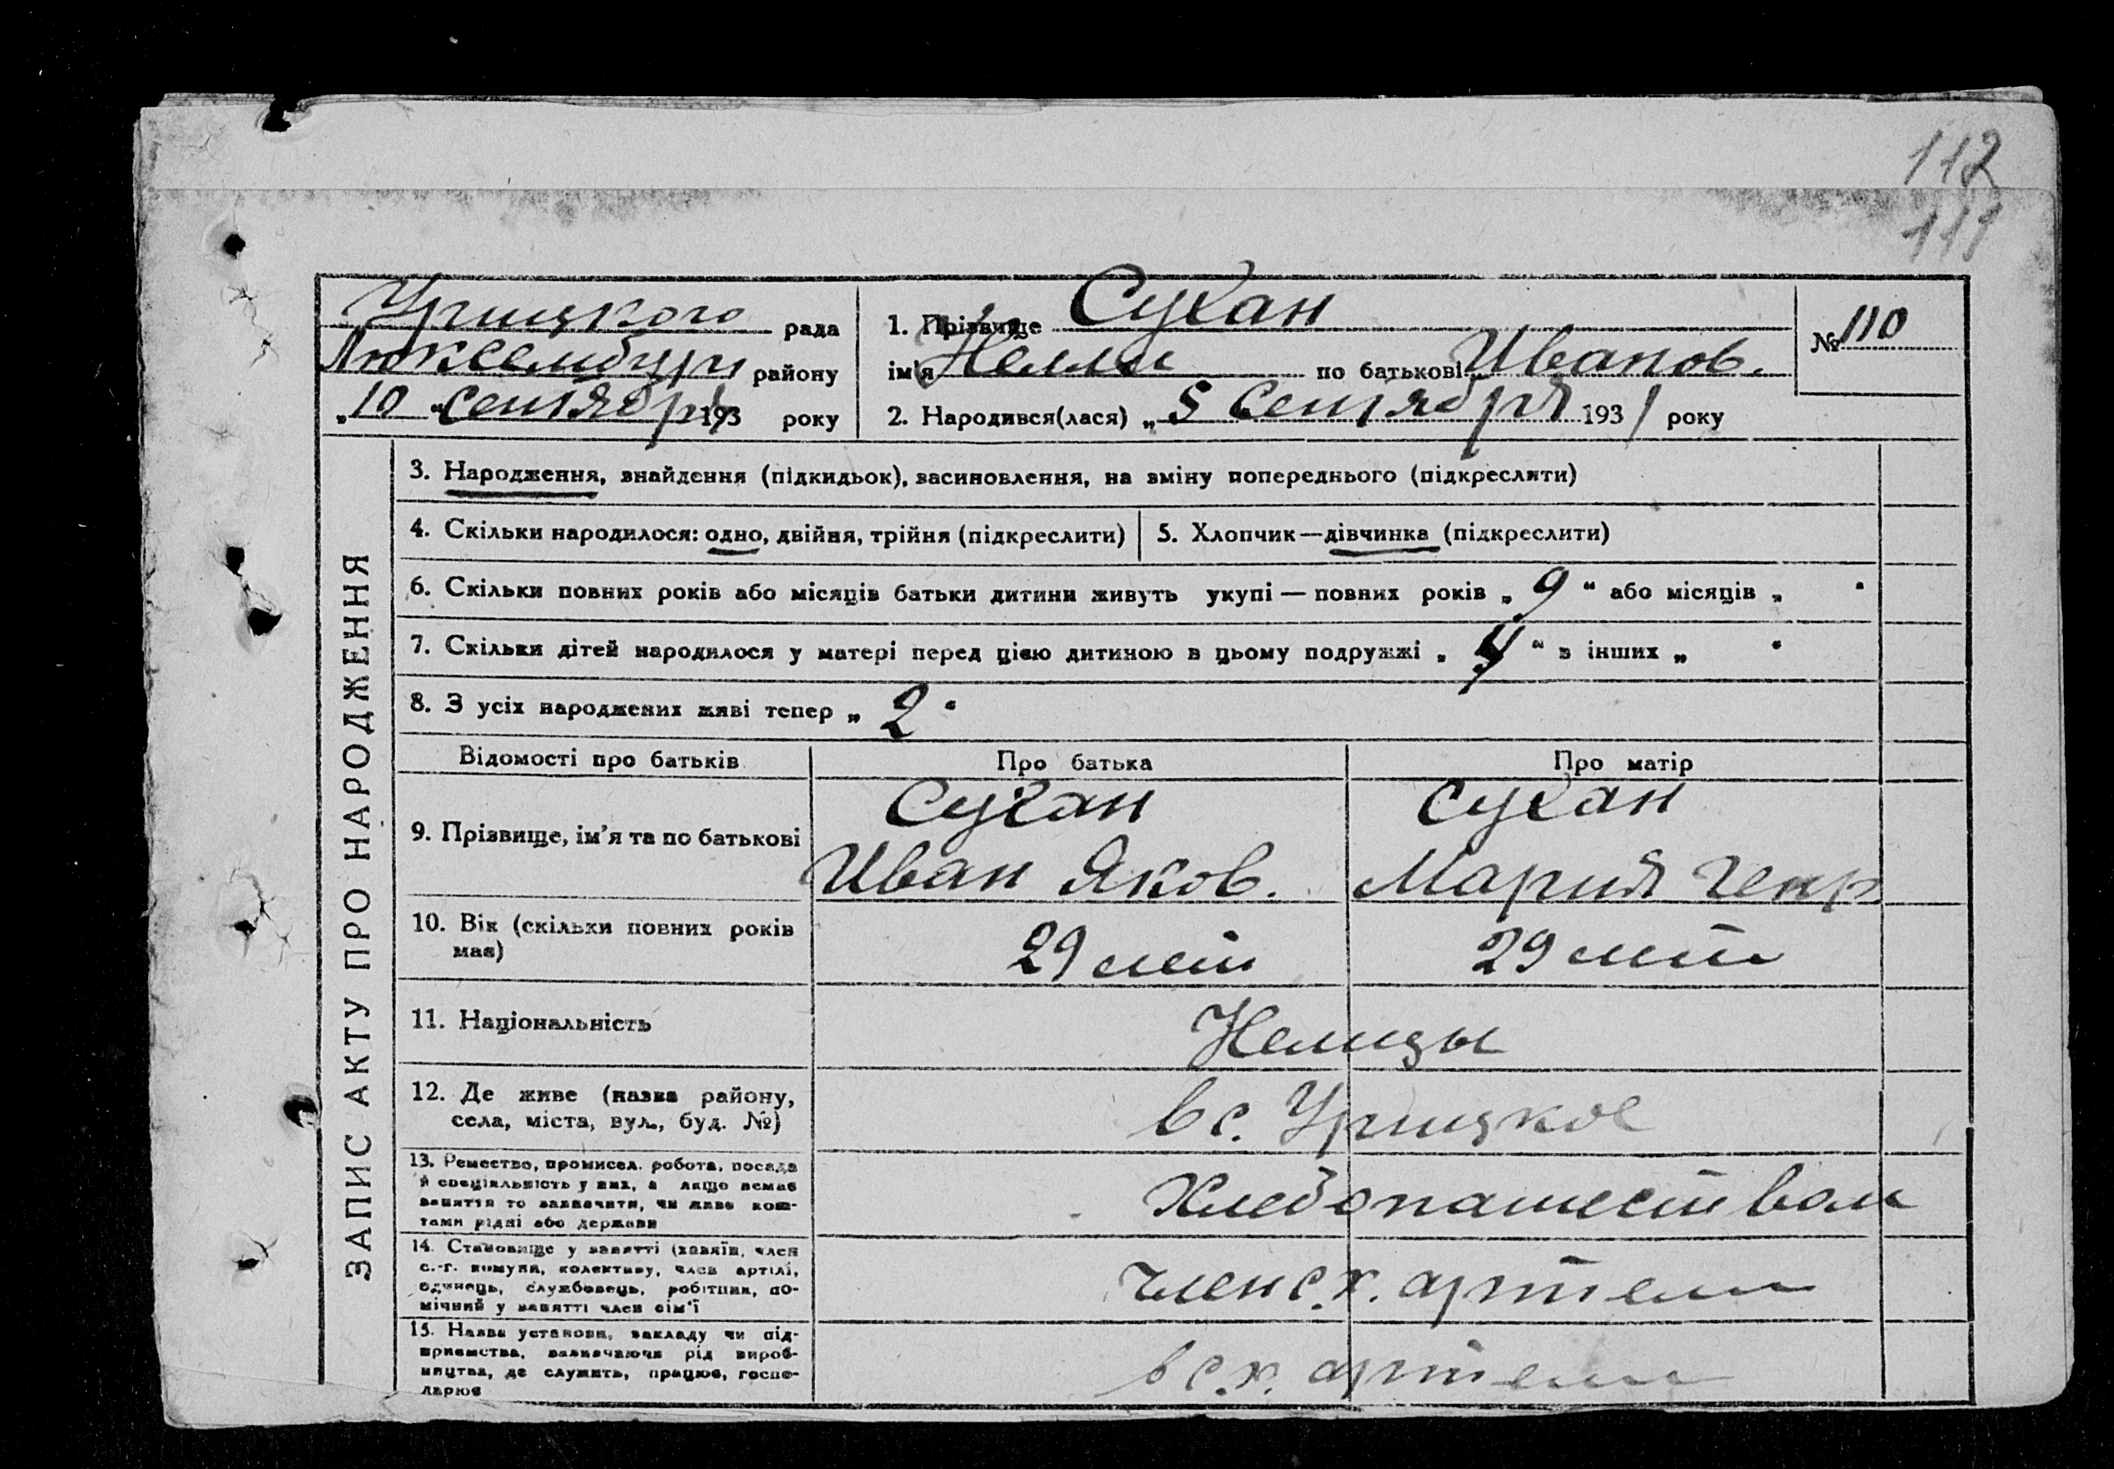 112
111
Урицкого рада
Люксембург району
„10 "сентябрь 193 року
1. Прізвище Сухан
ім'я Нелли по батькові Иванов.
№ 110
2. Народився(лася) „5 Сентября 1931 року
ЗАПИС АКТУ ПРО НАРОДЖЕННЯ
3. Народження, знайдення (підкидьок), засиновлення, на зміну попереднього (підкреслити)
4. Скільки народилося: одно, двійня, трійня (підкреслити)
5. Хлопчик—дівчинка (підкреслити)
6. Скільки повних років або місяців батьки дитини живуть укупі — повних років „ 9 " або місяців „ "
7. Скільки дітей народилося у матері перед цією дитиною в цьому подружжі „ 4 " в інших „ "
8. З усіх народжених живі тепер „ 2 "
Відомості про батьків
Про батька
Про матір
9. Прізвище, ім'я та по батькові
Сухан
Иван Яков.
Сухан
Мария Генр
10. Вік (скільки повних років
має)
29 лет
29 лет
11. Національність
Немцы
12. Де живе (назва району,
села, міста, вул., буд. №)
в с. Урицкое
13. Ремество, промисел, робота, посада
й спеціяльність у них, а якщо немає
заняття то зазначити, чи живе кош-
тами рідні або держави
Хлебопашеством
14. Становище у занятті (хазяїн, член
с.-г. комуни, колективу, член артілі,
одинець, службовець, робітник, по-
мічний у занятті член сім'ї
член с.х. артели
15. Назва установи, закладу чи під-
приємства, зазначаючи рід вироб-
ництва, де служить, працює, госпо-
дарює
в с.х. артели